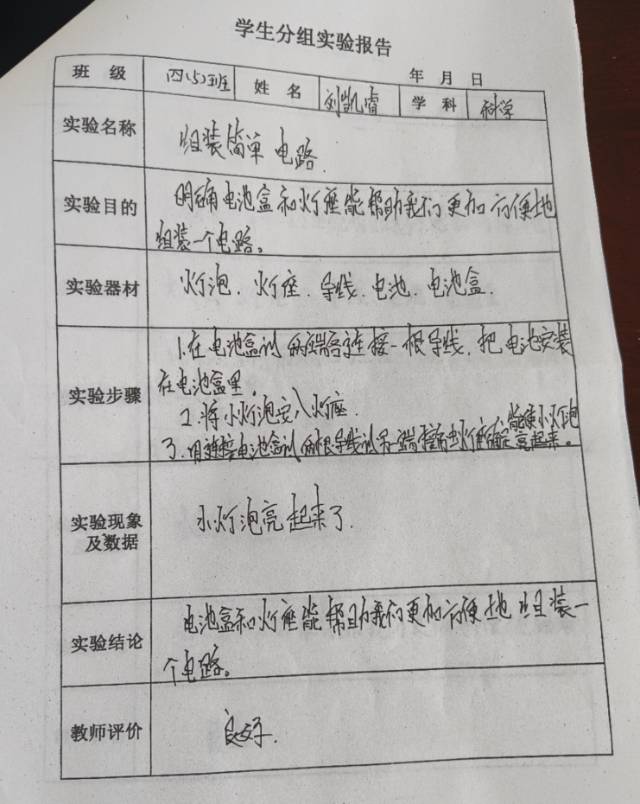 学生分组实验报告
年 月 日
班级 四(5)班 姓名 刘凯睿 学科 科学
实验名称 组装简单电路.
实验目的 明确电池盒和灯座能帮助我们更加方便地
组装一个电路。
实验器材 灯泡.灯座.导线.电池.电池盒.
实验步骤 1.在电池盒的两端各连接一根导线.把电池安装
在电池盒里.
2.将小灯泡安入灯座.
3.用连接电池盒的两根导线的另一端 灯座 确定能使小灯泡
亮起来。
实验现象
及数据 小灯泡亮起来了.
实验结论 电池盒和灯座能帮助我们更加方便地组装一
个电路。
教师评价 良好.